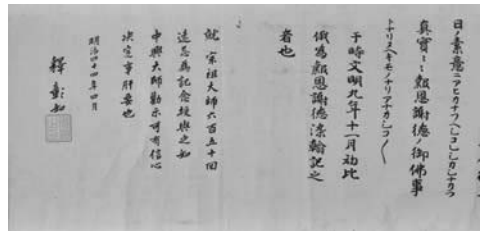 日ノ素意ニアヒカナフヘシコレシカシナカラ
真實ニ報恩謝徳ノ御佛事
トナリヌヘキモノナリアナカシコ〱
于時文明九年十一月初比
俄為報恩謝徳染翰記之
者也
就 宗祖大師六百五十回
遠忌為記念授與之如
中興大師勸示可有信心
决定事肝要也
明治四十四年四月
釋彰如